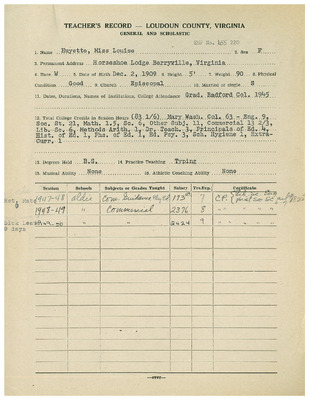 TEACHER'S RECORD — LOUDOUN COUNTY, VIRGINIA
GENERAL AND SCHOLASTIC
1. Name Huyette, Miss Louise 2. Sex F
3. Permanent Address Horseshoe Lodge Berryville, Virginia
4. Race W 5. Date of Birth Dec. 2, 1909 6. Height 5' 7. Weight 90 8. Physical
Condition Good 9. Church Episcopal 10. Married or single S
11. Dates, Durations, Names of Institutions, College Attendance Grad. Radford Col. 1945
12. Total College Credits in Session Hours (83 1/6) Mary Wash. Col. 63 - Eng. 9,
Soc. St. 21, Math. 1.5, Sc. 6, Other Subj. 11, Commercial 13 2/3,
Lib. Sc. 6, Methods Arith. 1, Dr. Teach. 3, Principals of Ed. 4,
Hist. of Ed. 1, Phs. of Ed. 1, Ed. Psy. 3, Sch. Hygiene 1, Extra-
Curr. 1
13. Degrees Held B.S. 14. Practice Teaching Typing
15. Musical Ability None 16. Athletic Coaching Ability None
Session Schools Subjects or Grades Taught Salary Yrs. Exp. Certificate
1947-48 Aldie Com. Guidance 7 C.P.
1948-49 " Commercial 2376 8 " " "
" " 2424 9 " " "